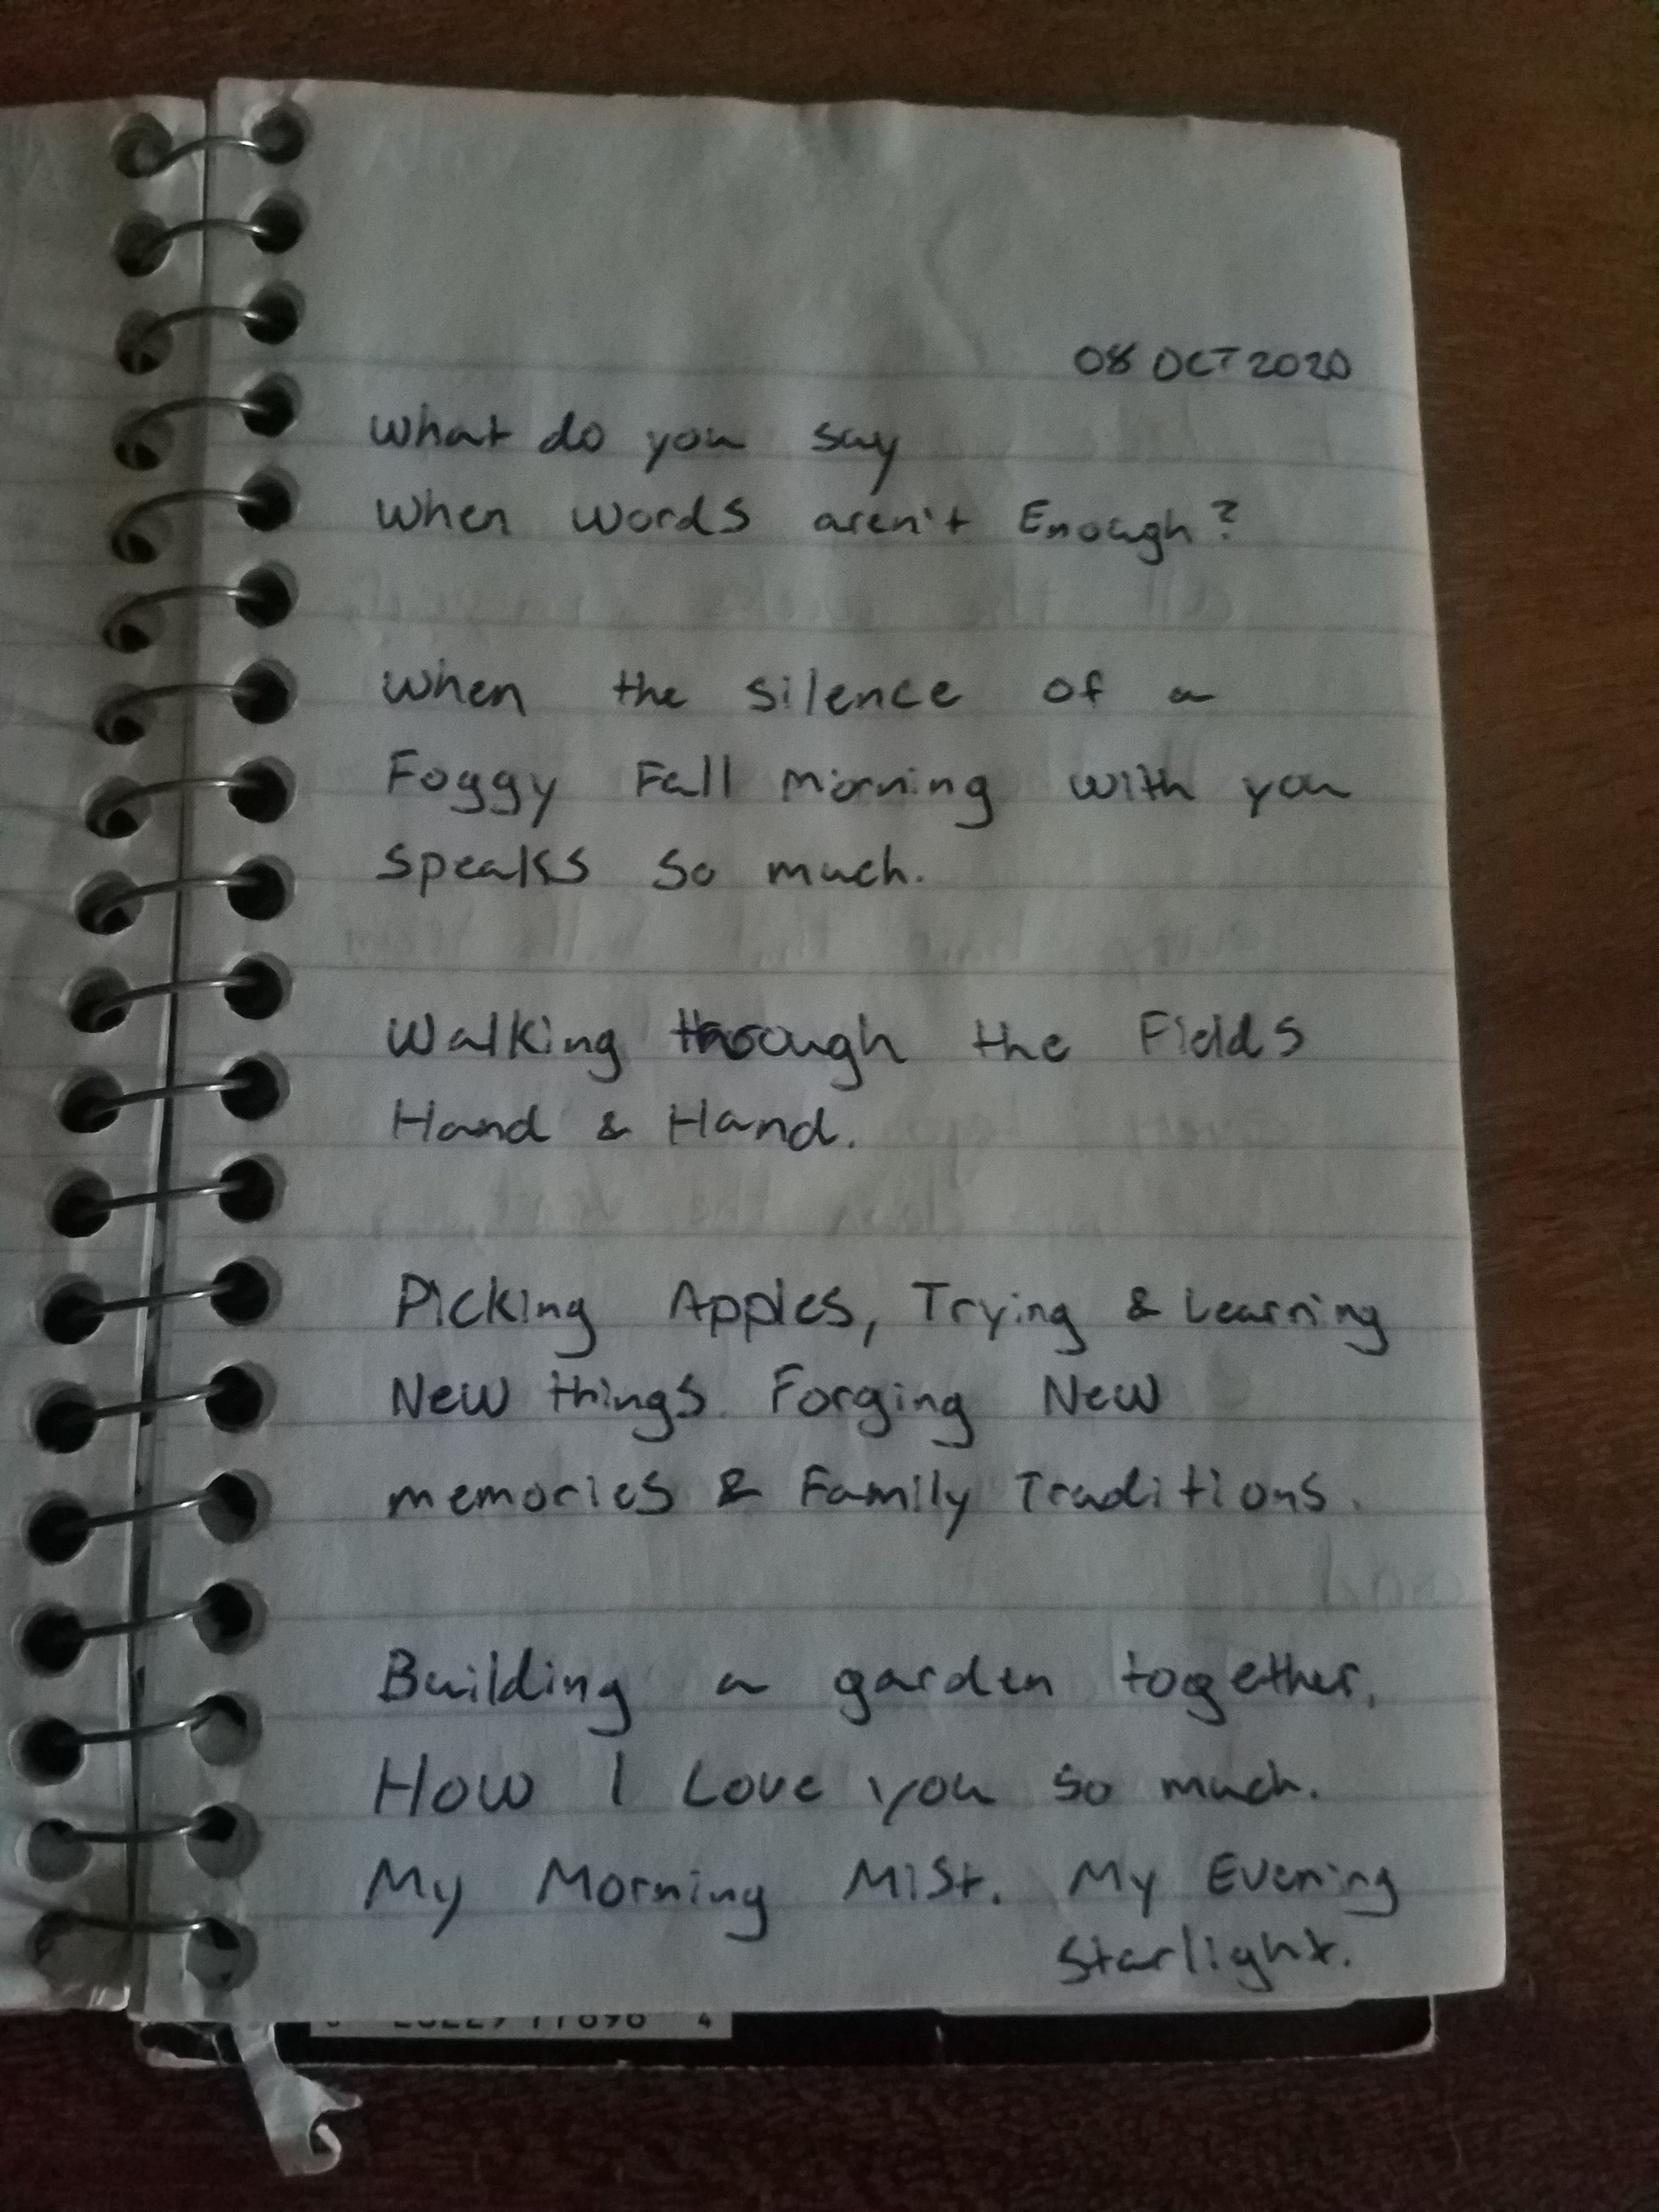 08 OCT 2020
What do you say
When Words aren't Enough?
When the silence of a
Foggy Fall Morning with you
Speaks So much.
Walking through the Fields
Hand & Hand.
Picking Apples, Trying & Learning
New things. Forging New
memories & Family Traditions.
Building a garden together.
How I Love you so much.
My Morning Mist. My Evening
Starlight.